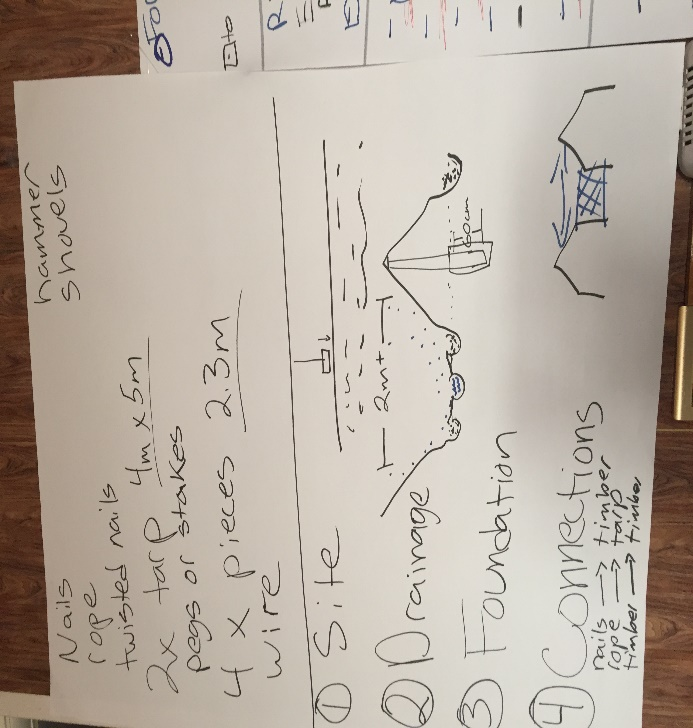 Nails
rope
twisted nails
2x tarp 4m x 5m
pegs or stakes
4 x pieces 2.3m
wire
hammer
shovels
① Site
② Drainage
2m+
③ Foundation
60cm
④ Connections
nails → timber
rope → tarp
timber → timber
to